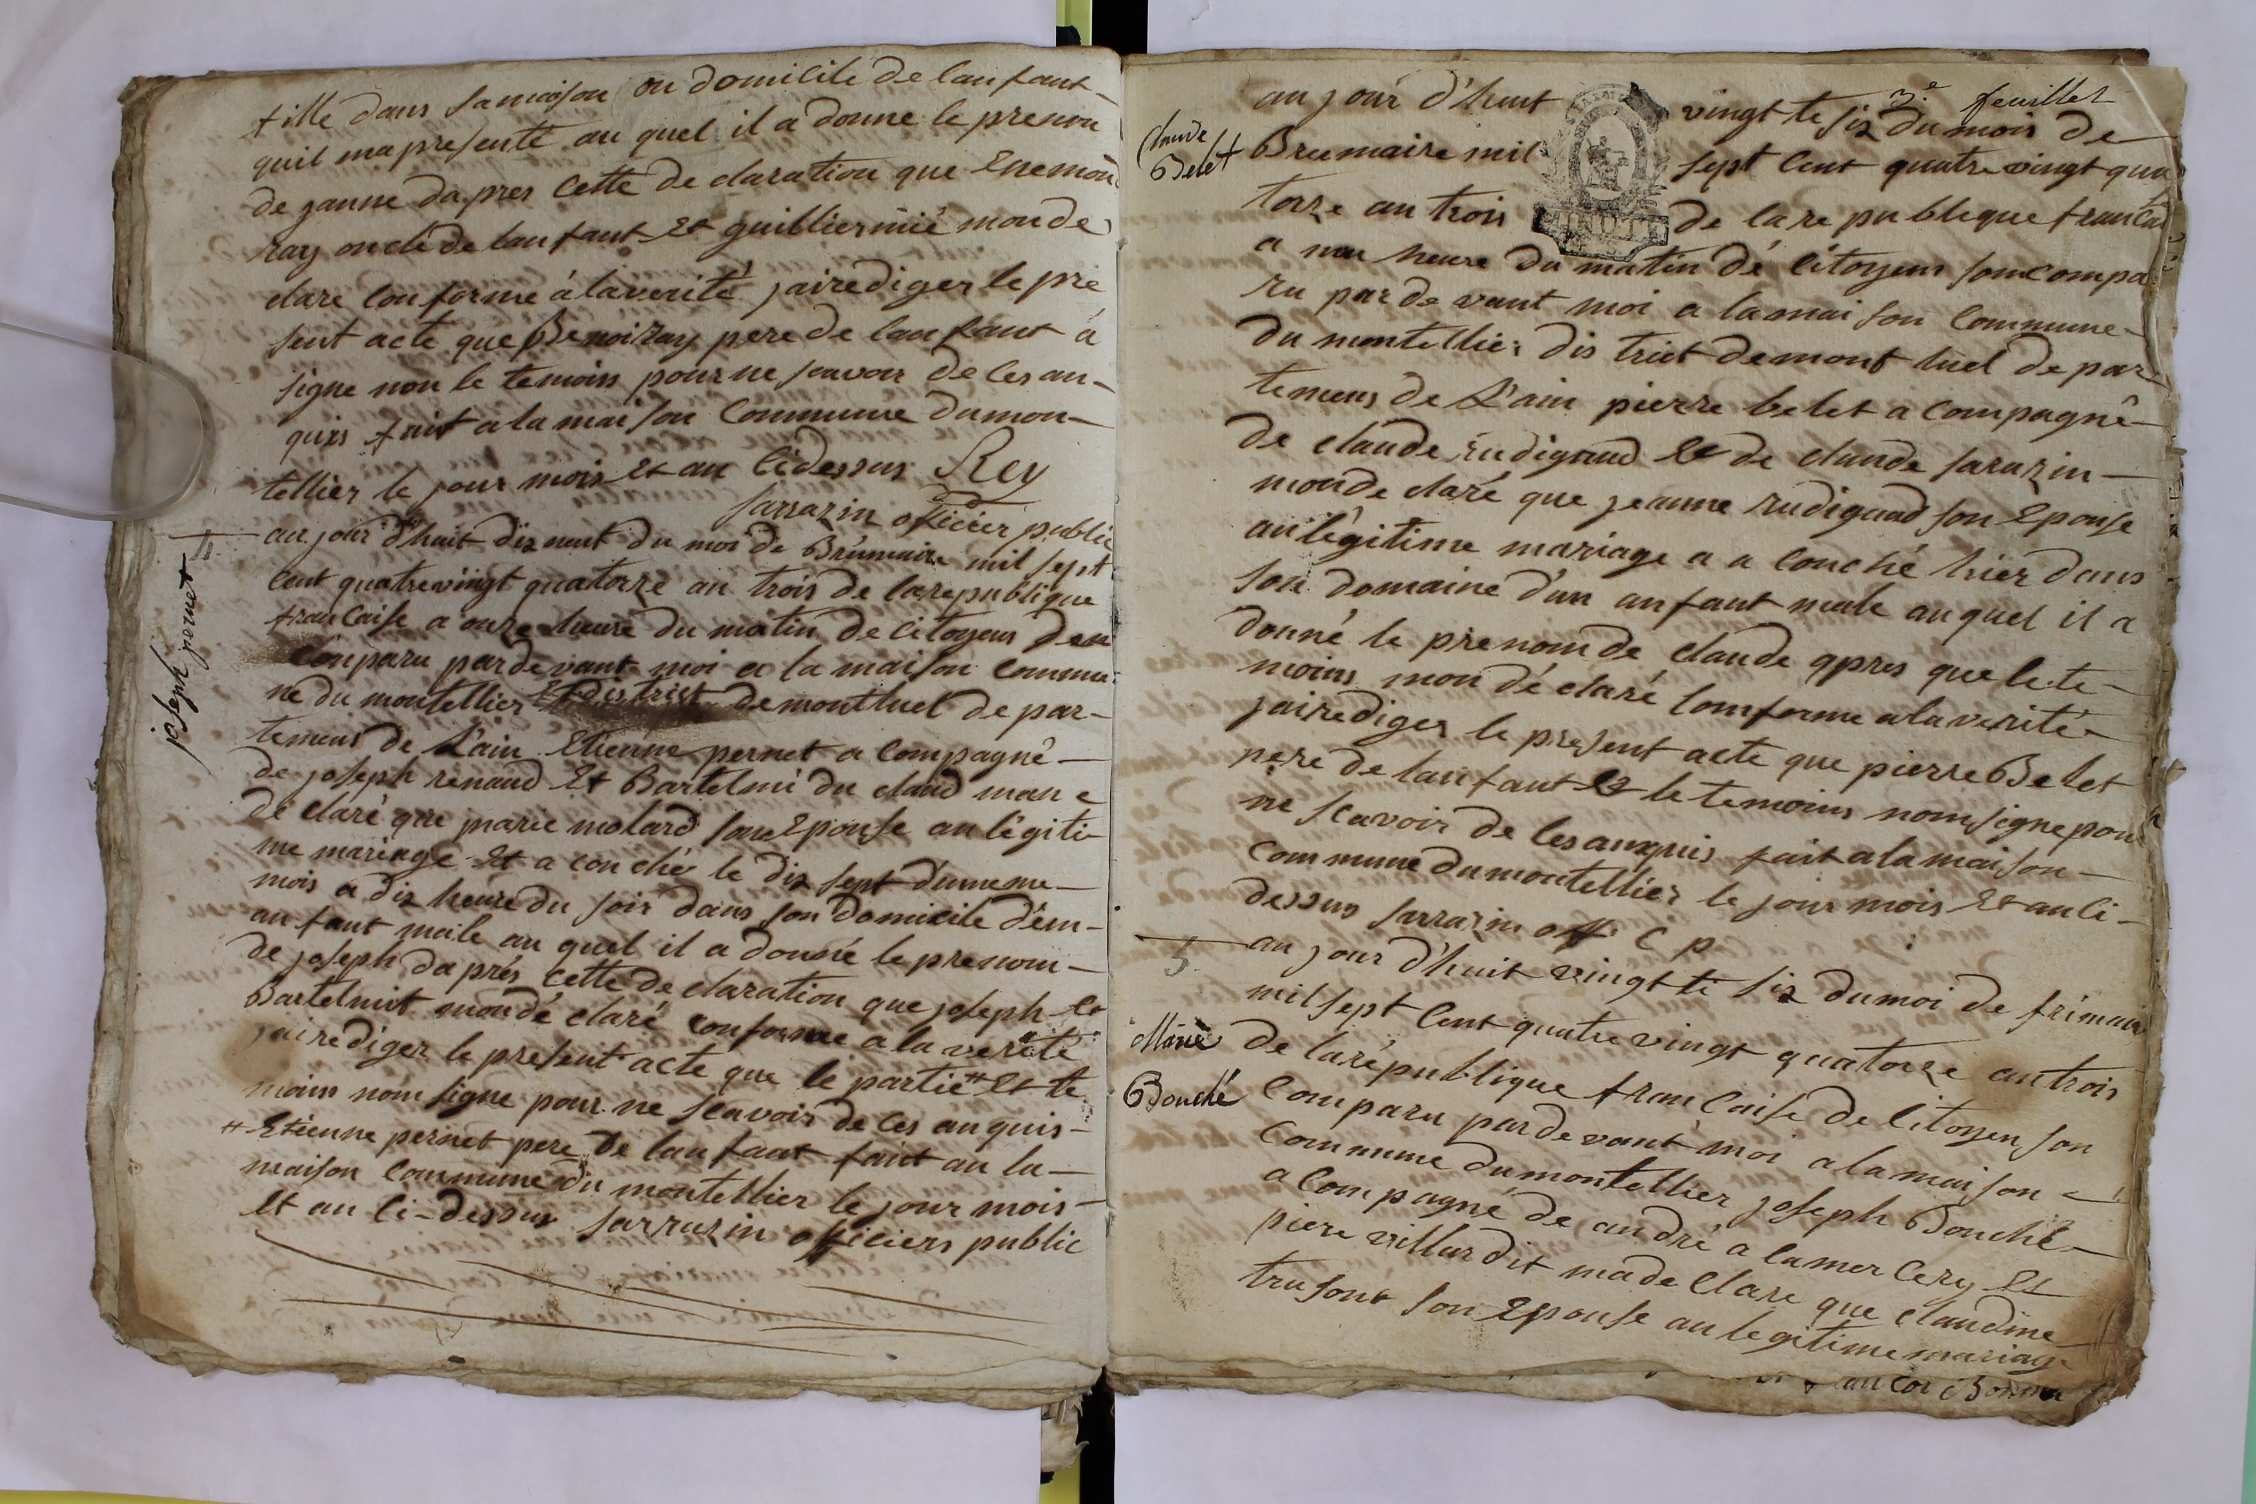 fille dans sa maison ou domicile de lanfant
quil ma presenté au quel il a donné le prenon
de janne dapres cette de claration que Enemon
ray oncle de lanfant et guilliermie mon de
claré conforme á la verité jai rediger le pre
sent acte que Benoi ray pere de lanfant à
signe non le temoins pour ne scavoir de ces an-
quis fait a la maison Commune du mon-
tellier le jour mois et an cidessus Rey
sarrazin officier public
joseph pernet
au jour d'huit dix neuf du moi de Brumaire mil sept
cent quatrevingt quatorze an trois de la republique
francaise a onze heure du matin de citoyens
Conparu pardevant moi a la maison commu-
ne du montellier et district de montluel de par-
temens de L'ain Etienne pernet a compagné
de joseph renaud et Bartelmi du claud
dé claré que marie molard son Epouse an légiti-
me mariage et a couchés le dix sept dumeme
mois a dix heure du soir dans son domicile d'ém-
anfant male au quel il a donné le prenom
de joseph daprés cette de claration que joseph et
Bartelmit mon dé claré conforme a la verité
jai rediger le present acte que le partie # et te
moins nom signe pour ne scavoir de ces anquis
# Etienne pernet pere de lanfant fait an la
maison commune du montellier le jour mois
et an ci-dessus sarrazin officiers public
3.e feuillet
Claude
Belet
au jour d'huit vingt te six du mois de
Brumaire mil sept cent quatre vingt qua
torze an trois de la re publique francai
a neu heure du matin dé citoyens son compa
ru par de vant moi a la mai son Commune
du montellier dis trict de mont luel de par
temens de L'ain pierre belet a compagné
de claude rudigaud et de claude sarazin
mon de claré que jeanne rudigaud son Epouse
an légitime mariage a a couché hier dans
son domaine d'un anfant male au quel il a
donné le prenom de claude apres que le te-
moins mon dé claré comforme a la verité
jai rediger le present acte que pierre Belet
pere de lanfant et le temoins nom signe pou
ne scavoir de ces anquis fait a la maison
commune du montellier le jour mois et an ci-
dessus sarrazin off c p
5.
Marie
Bouché
au jour d'huit vingt te six du moi de frimair
mil sept cent quatre vingt quatorze an trois
de la république francaise de citoyen son
Comparu par de vant moi a la maison
commune du montellier joseph Bouché
a compagné de andré a lamercery et
piere villardit ma de clare que claudine
trufont son Epouse an legitime mariage